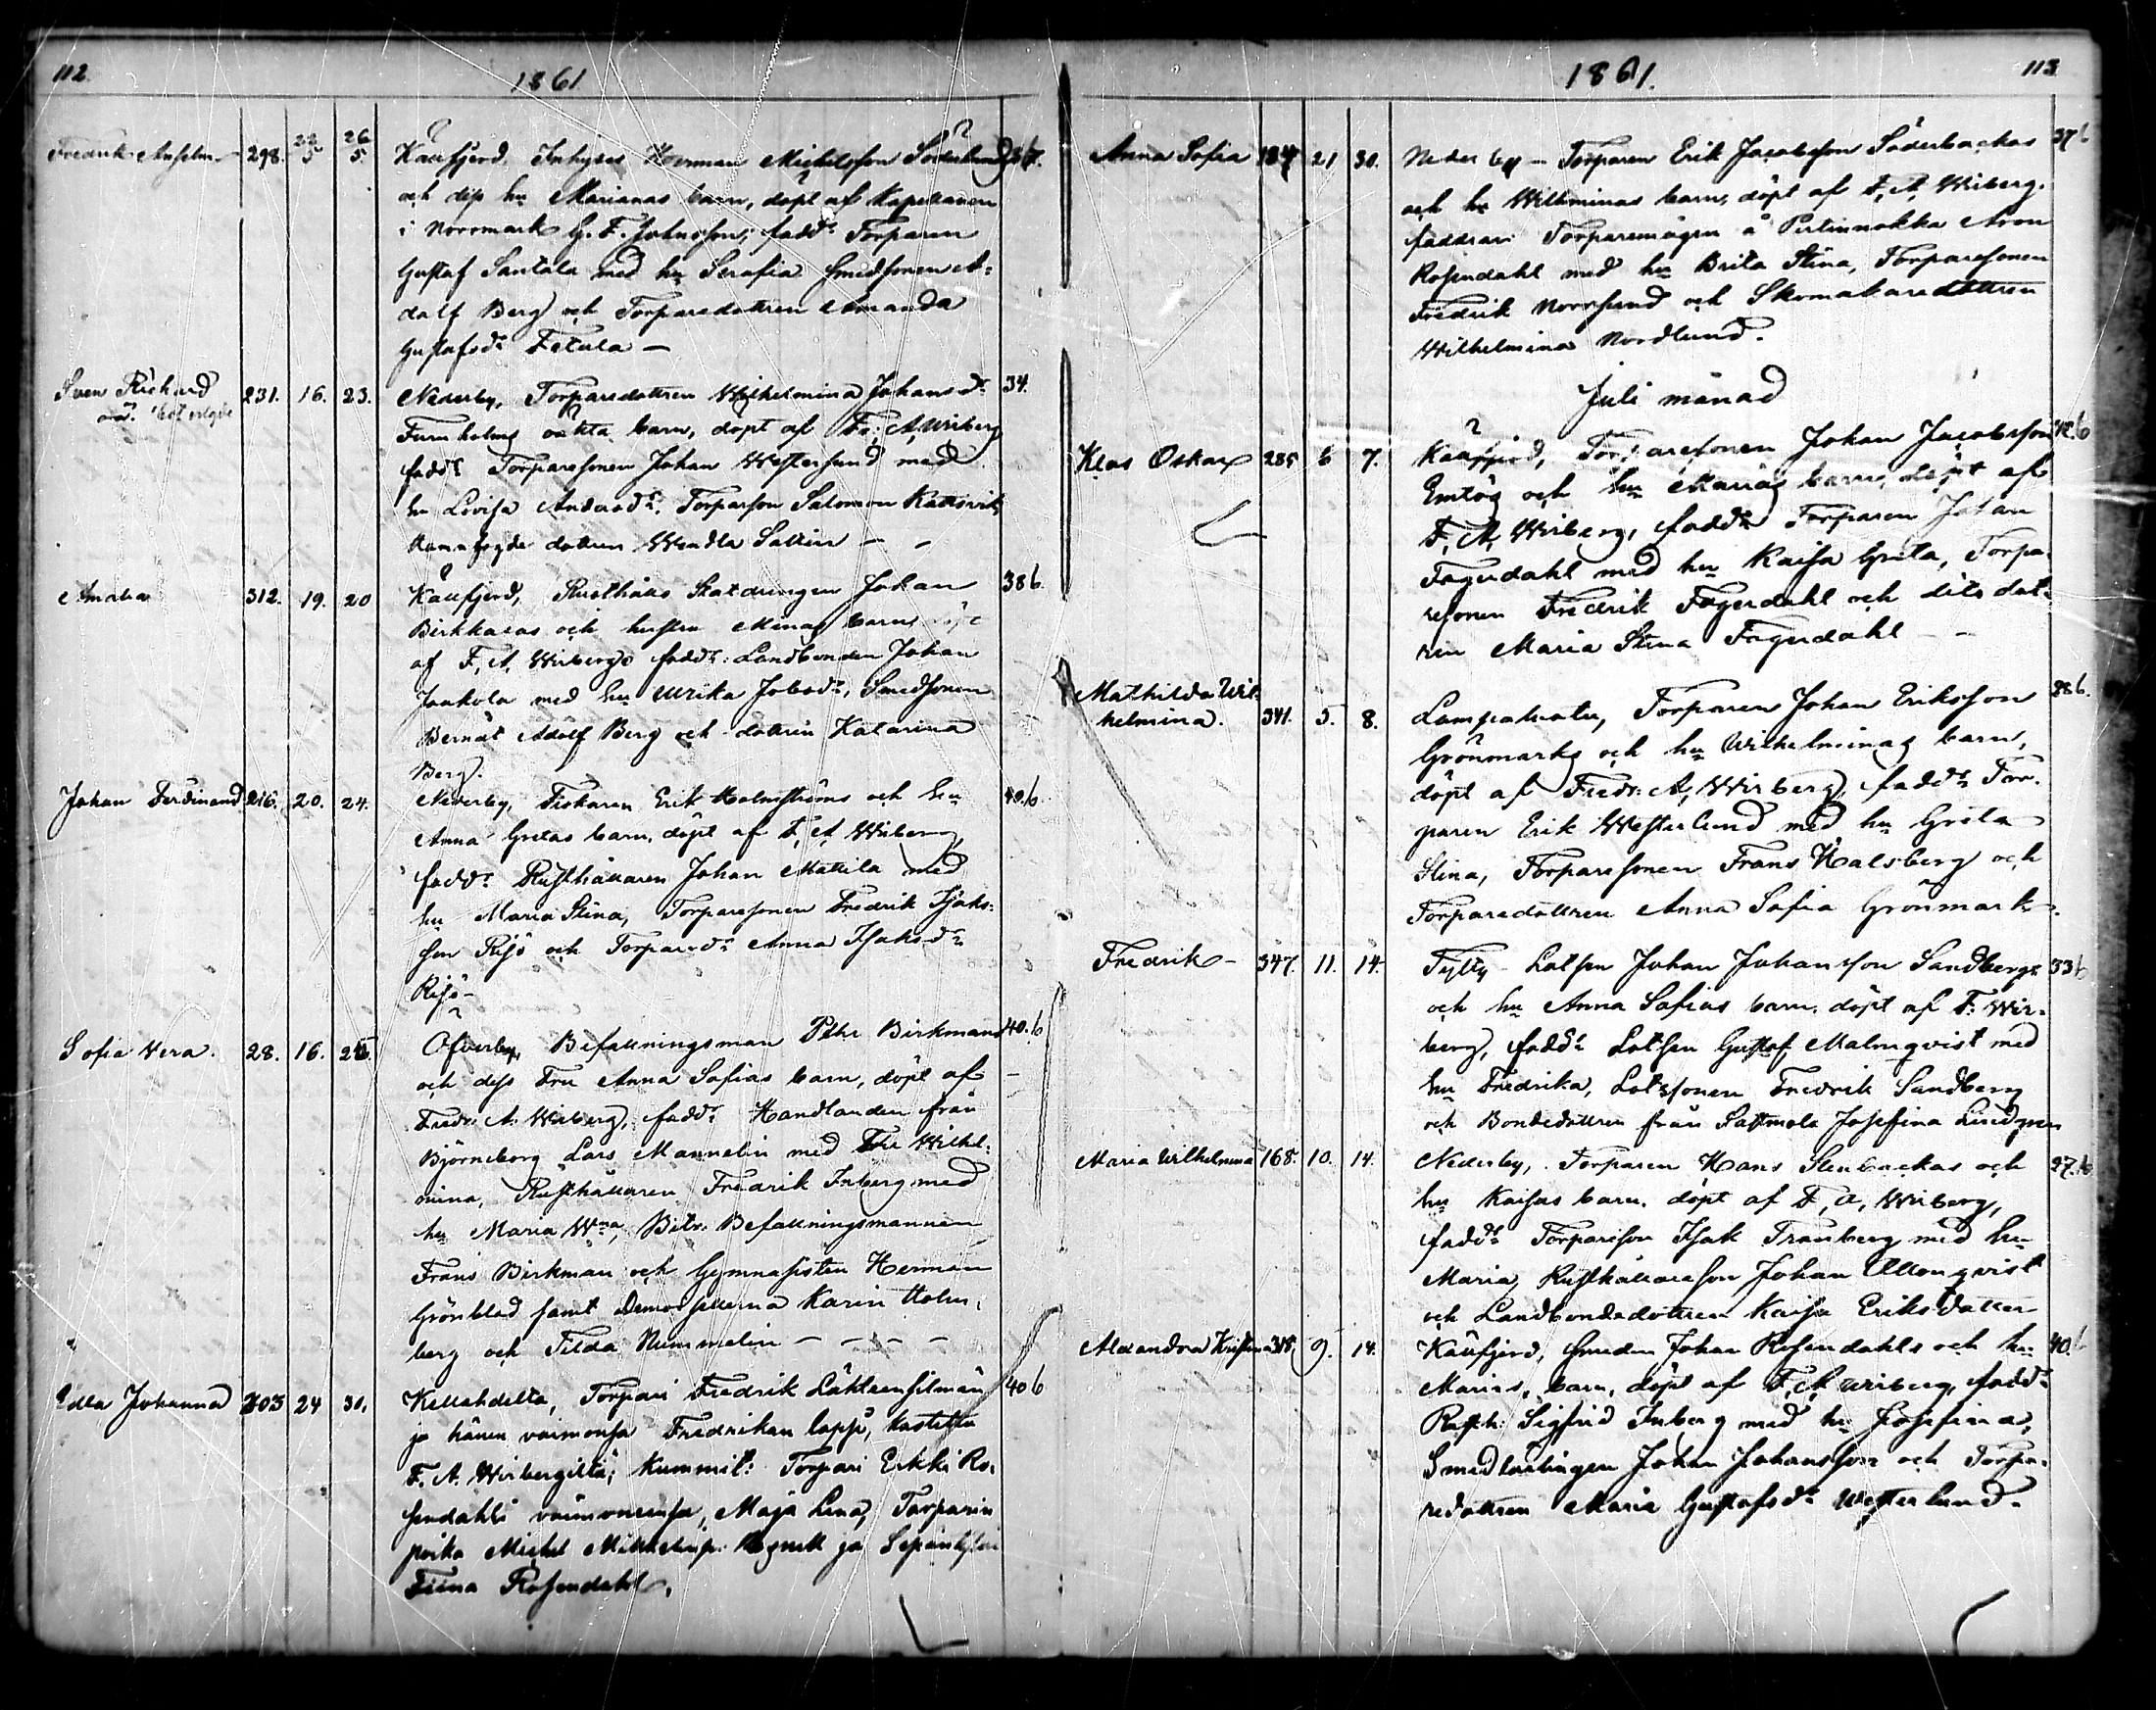 112.
1861
Fredrik Anselm 298. 22/5 26/5 Kaufjerd, Inhyses Herrman Michelsson Söderlunds
och dess hu Marianas barn, döpt af Kapellanen
i Norrmark G. F. Johnsson; fadd: Torparen
Gustaf Santala med hu Serafia Smedsonen A-
dolf Berg och Torparedottren Amanda
Gustafsdr Fetula —
Sven Richard 231. 16. 23. Nederby, Torparedottren Wilhelmina Johansdr 34.
Furuholms oäkta barn, döpt af Fr: A, Wirberg
fadd: Torparesonen Johan Westerlund med
hu Lovisa Andersdr, Torparson Salomon
dottren Wendla Sallin — —
Amalia 312. 19. 20 Kaufjerd, Johan 386
Birkkalas och hustru Minas barn, döpt
af F, A, Wirberg fadd: Landbonden Johan
Jaakola med hu Ulrika Jobsdr, Smedsonen
Bernät Adolf Berg och dottren Katarina
Berg.
Johan Ferdinand 216. 20. 24. Nederby, Fiskaren Erik Holmströms och hu 40.b
Anna Gretas barn, döpt af F, A, Wirberg
fadd: Rusthållaren Johan Mattila med
hu Maria Stina, Torparesonen Fredrik Isaks-
son Risö och Torparedr Anna Isaksdr
Risö —
Sofia Wera. 28. 16. 26. Öfverby, Befallningsman Pehr Birkmans 40.b
och dess Fru Anna Sofias barn, döpt af
Fredr: A. Wirberg, fadd: Handlanden från
Björneborg Lars Mannelin med Fru Wilhel-
mina, Rusthållaren Fredrik Inberg med
hu Maria Wna, Bitr. Befallningsmannen
Frans Birkman och Gymnasisten Herman
Grönblad samt Demoisellerna Karin Holm-
berg och Tilda Nummelin — — — —
Edla Johanna 203 24 30. Kellahdelta, Torpari Fredrik Läkteensilmän 40 b
ja hänen vaimonsa Fredrikan lapsi, kastettu
F. A. Wirbergiltä; Kummit: Torpari Erkki Ro-
sendahl vaimonensa, Maja Lena, Torparin
poika Michel ja
Tiina Rosendahl.
1861.
113
Anna Sofia 184 21 30. Nederby — Torparen Erik Jacobsson Söderbackas 37 b
och hu Wilhminas barn, döpt af F, A, Wirberg.
faddrar: Torparemågen å Pertinnokka Aron
Rosendahl med hu Brita Stina, Torparesonen
Fredrik Norrlund och Skomakaredottren
Wilhelmina Nordlund.
Juli månad
Klas Oskar 285 6 7. Kaufjerd, Torparesonen Johan Jacobsson
Emtög och hu Marias barn, döpt af
F, A, Wirberg, fadd: Torparen Johan
Fagerdahl med hu Kaisa Greta, Torpa-
resonen Fredrik Fagerdahl och dito dot-
tren Maria Stina Fagerdahl — —
Mathilda Wil-
helmina. 341. 5. 8. Lampaluoto, Torparen Johan Eriksson 286.
Grönmarks och hu Wilhelminas barn,
döpt af Fredr: A, Wirberg, fadd: Tor-
paren Erik Westerlund med hu Greta
Stina, Torparesonen Frans Kalsberg och
Torparedottren Anna Sofia Grönmark.
Fredrik — 347. 11. 14. Tytty — Lotsen Johan Johansson Sandbergs 33 b
och hu Anna Sofias barn, döpt af F. Wir-
berg, fadd: Lotsen Gustaf Malmqvist med
hu Fredrika, Lotssonen Fredrik Sandberg
och Bondedottren från Sastmola Josefina Lindgren
Maria Wilhelmina 168. 10. 14. Nederby, Torparen Hans Stenbackas och 27. b
hu Kaisas barn, döpt af F, A, Wirberg,
fadd: Torparson Isak Tranberg med hu
Maria, Rusthållareson Johan Ullonqvist
och Landbondedottren Kaisa Eriksdotter
Alexandra Kristina 318. 9. 14. Kaufjerd, Smeden Johan Rosendahls och hu 40. b
Marias, barn, döpt af F, A Wirberg, fadd:
Rusth: Sigfrid Inberg med hu Josefina,
Smedlärlingen Johan Johansson och Torpa-
redottren Maria Gustafsdr Westerlund.